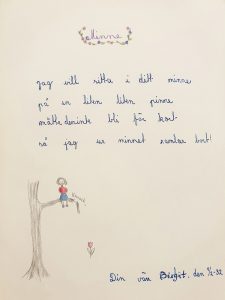 Minne
Jag vill sitta i ditt minne
på en liten liten pinne
måtte den inte bli för kort
så jag ur minnet ramlar bort!
Din vän Birgit, den